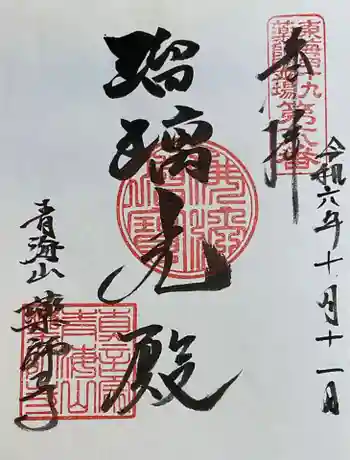 東海四十九
薬師霊場第十八番
奉拝
令和六年十月十一日
瑠璃光殿
佛法僧寶
青海山
薬師寺